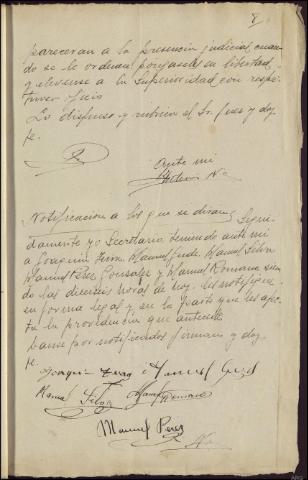 8
parecerán a la presencia judicial cuan-
do se le ordene; póngasele en libertad,
y elevense a la Superioridad con respe-
tuoso oficio
Lo dispuso y rubrica el Sr. Juez y doy
fe.
Ante mi
Notificacion a los que se dirán, Segui-
damente yo Secretario teniendo ante mi
a Joaquin Manuel Manuel Silva
Manuel Perez Gonzalez y Manuel Romano, sien-
do las dieciseis horas de hoy, les notifiqué
en forma legal y en la parte que les afec-
ta la providencia que antecede
danse por notificados firman y doy
fe.
Joaquin Manuel
Silva Manuel Romano
Manuel Perez